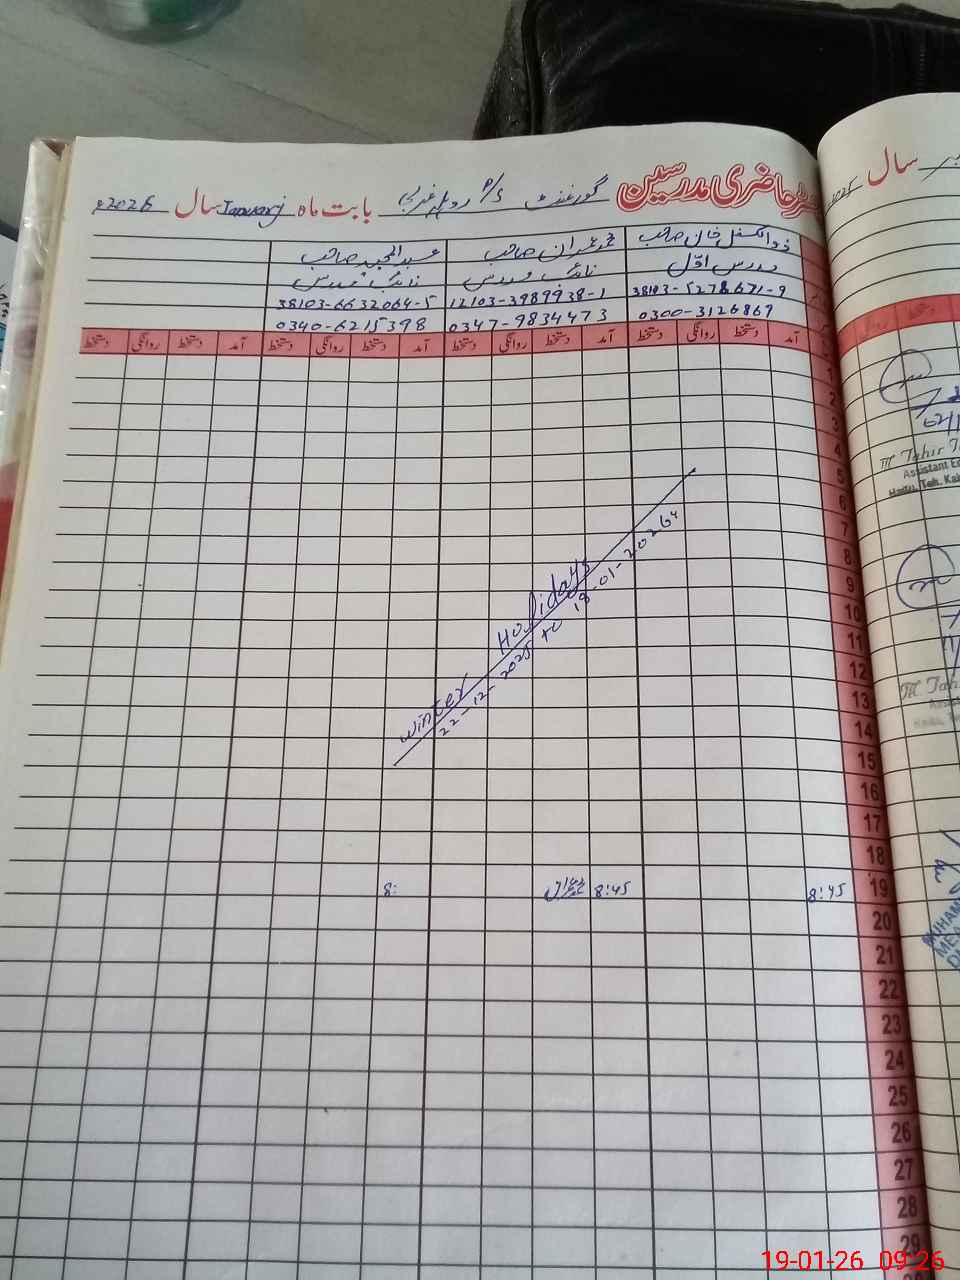 رجسٹر حاضری مدرسین گورنمنٹ P/S بابت ماہ January سال 2026ء
ذوالکفل خان صاحب
محمد عمران صاحب
عبدالمجید صاحب
مدرس اوّل
نائب مدرس
نائب مدرس
38103-5278671-9
12103-3989938-1
38103-6632064-5
0300-3126869
0347-9834473
0340-6215398
آمد دستخط روانگی دستخط آمد دستخط روانگی دستخط آمد دستخط روانگی دستخط آمد دستخط روانگی دستخط
1
2
3
4
5
6
7
8
9
10
11
12
13
14
15
16
17
18
19 8:45 8:45 عمران 8:
20
21
22
23
24
25
26
27
28
29
Winter Holidays
22-12-2025 to 18-01-2026ء
سال 2025
M. Tahir
Assistant
Teh.
M. Tahir
19-01-26 09:26